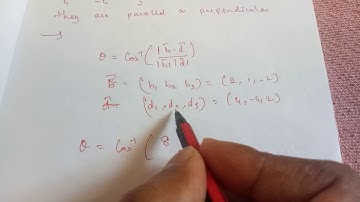 4 -4 2
they are parallel or perpendicular
θ = Cos⁻¹ ( |b̄ - d̄| / |b̄| |d̄| )
B̄ = (b₁ b₂ b₃) = (2, 1, -2)
(d₁, d₂, d₃) = (4, -4, 2)
θ = Cos⁻¹ ( 8